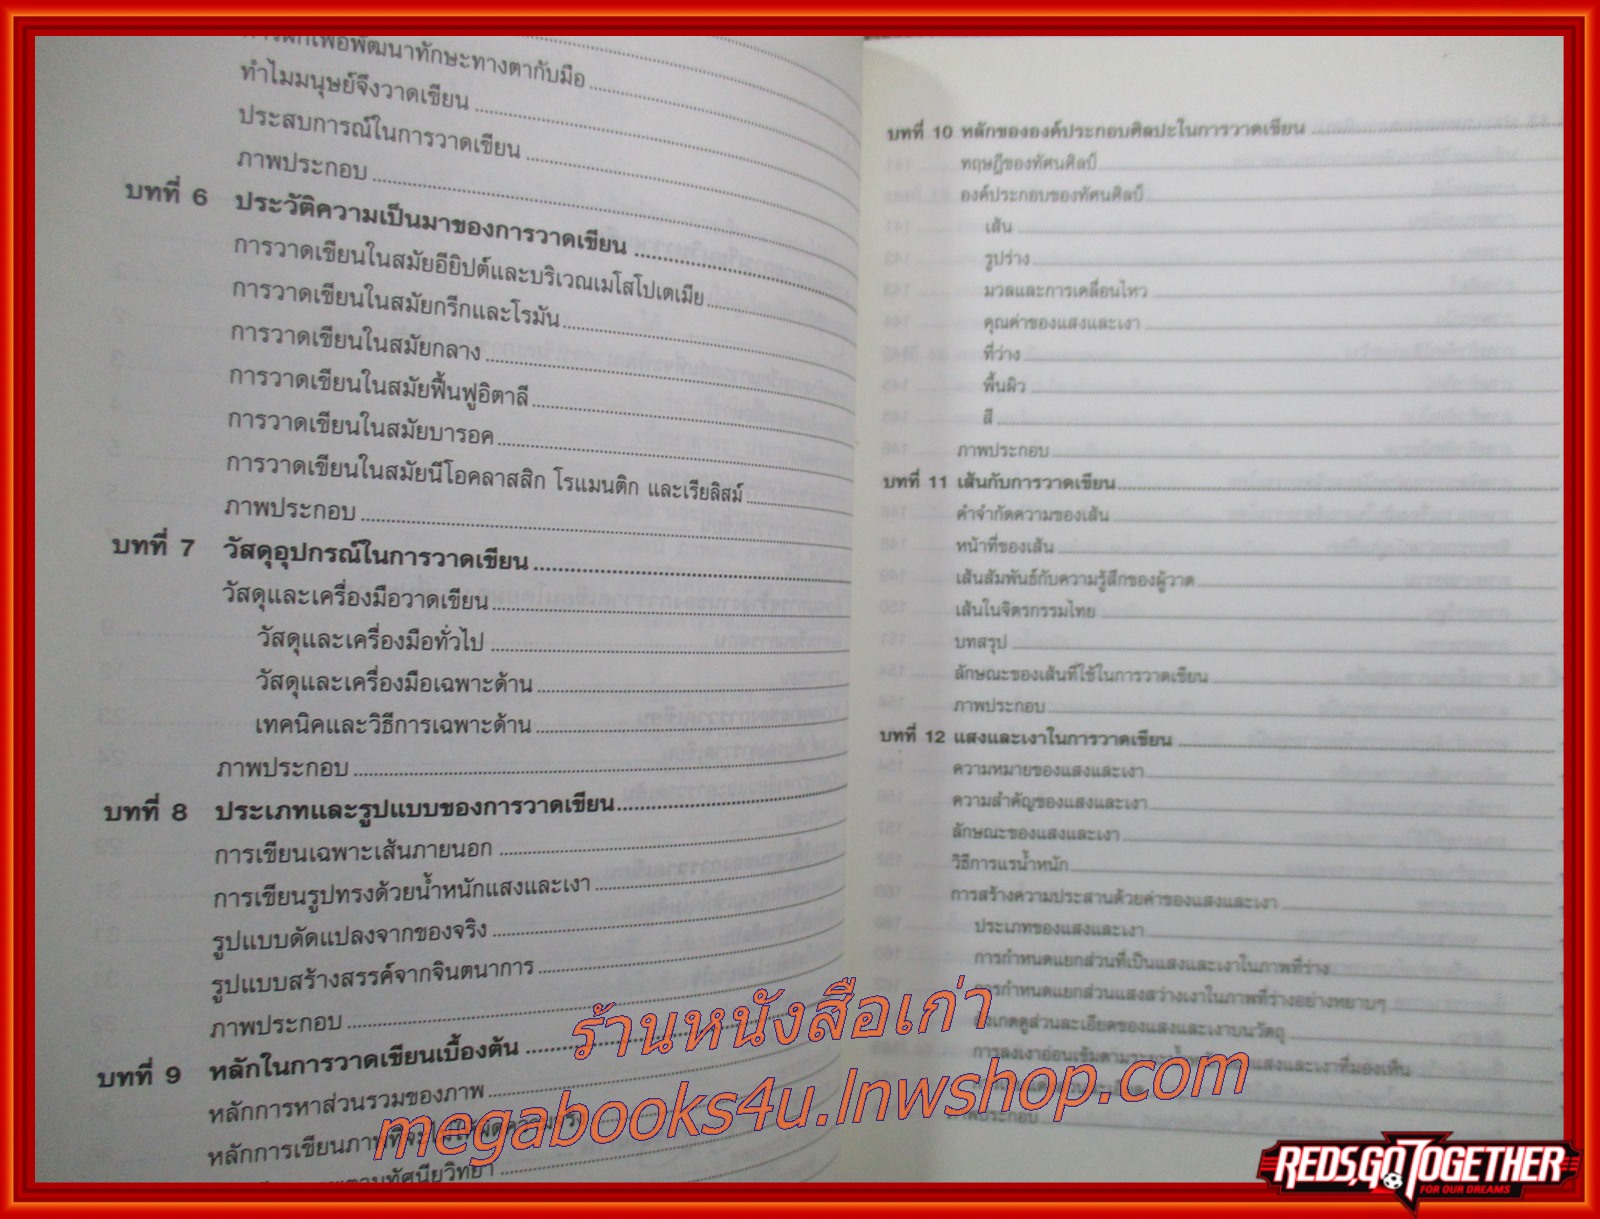 การฝึกเพื่อพัฒนาทักษะทางตากับมือ
ทำไมมนุษย์จึงวาดเขียน
ประสบการณ์ในการวาดเขียน
ภาพประกอบ
บทที่ 6 ประวัติความเป็นมาของการวาดเขียน
การวาดเขียนในสมัยอียิปต์และบริเวณเมโสโปเตเมีย
การวาดเขียนในสมัยกรีกและโรมัน
การวาดเขียนในสมัยกลาง
การวาดเขียนในสมัยฟื้นฟูอิตาลี
การวาดเขียนในสมัยบารอค
การวาดเขียนในสมัยนีโอคลาสสิก โรแมนติก และเรียลิสม์
ภาพประกอบ
บทที่ 7 วัสดุอุปกรณ์ในการวาดเขียน
วัสดุและเครื่องมือวาดเขียน
วัสดุและเครื่องมือทั่วไป
วัสดุและเครื่องมือเฉพาะด้าน
เทคนิคและวิธีการเฉพาะด้าน
ภาพประกอบ
บทที่ 8 ประเภทและรูปแบบของการวาดเขียน
การเขียนเฉพาะเส้นภายนอก
การเขียนรูปทรงด้วยน้ำหนักแสงและเงา
รูปแบบดัดแปลงจากของจริง
รูปแบบสร้างสรรค์จากจินตนาการ
ภาพประกอบ
บทที่ 9 หลักในการวาดเขียนเบื้องต้น
หลักการหาส่วนรวมของภาพ
หลักการเขียนภาพที่
ตามทัศนียวิทยา
บทที่ 10 หลักขององค์ประกอบศิลปะในการวาดเขียน
ทฤษฎีของทัศนศิลป์
องค์ประกอบของทัศนศิลป์
เส้น
รูปร่าง
มวลและการเคลื่อนไหว
คุณค่าของแสงและเงา
ที่ว่าง
พื้นผิว
สี
ภาพประกอบ
บทที่ 11 เส้นกับการวาดเขียน
คำจำกัดความของเส้น
หน้าที่ของเส้น
เส้นสัมพันธ์กับความรู้สึกของผู้วาด
เส้นในจิตรกรรมไทย
บทสรุป
ลักษณะของเส้นที่ใช้ในการวาดเขียน
ภาพประกอบ
บทที่ 12 แสงและเงาในการวาดเขียน
ความหมายของแสงและเงา
ความสำคัญของแสงและเงา
ลักษณะของแสงและเงา
วิธีการแรน้ำหนัก
การสร้างความประสานด้วยค่าของแสงและเงา
ประเภทของแสงและเงา
การกำหนดแยกส่วนที่เป็นแสงและเงาในภาพที่ร่าง
การกำหนดแยกส่วนแสงสว่างเงาในภาพที่ร่างอย่างหยาบๆ
สังเกตดูส่วนละเอียดของแสงและเงาบนวัตถุ
การลงเงาอ่อนเข้มตามระยะน้ำหนักแสงและเงาที่มองเห็น
ภาพประกอบ
ร้านหนังสือเก่า
megabooks4u.lnwshop.com
REDS,GO TOGETHER
FOR OUR DREAMS